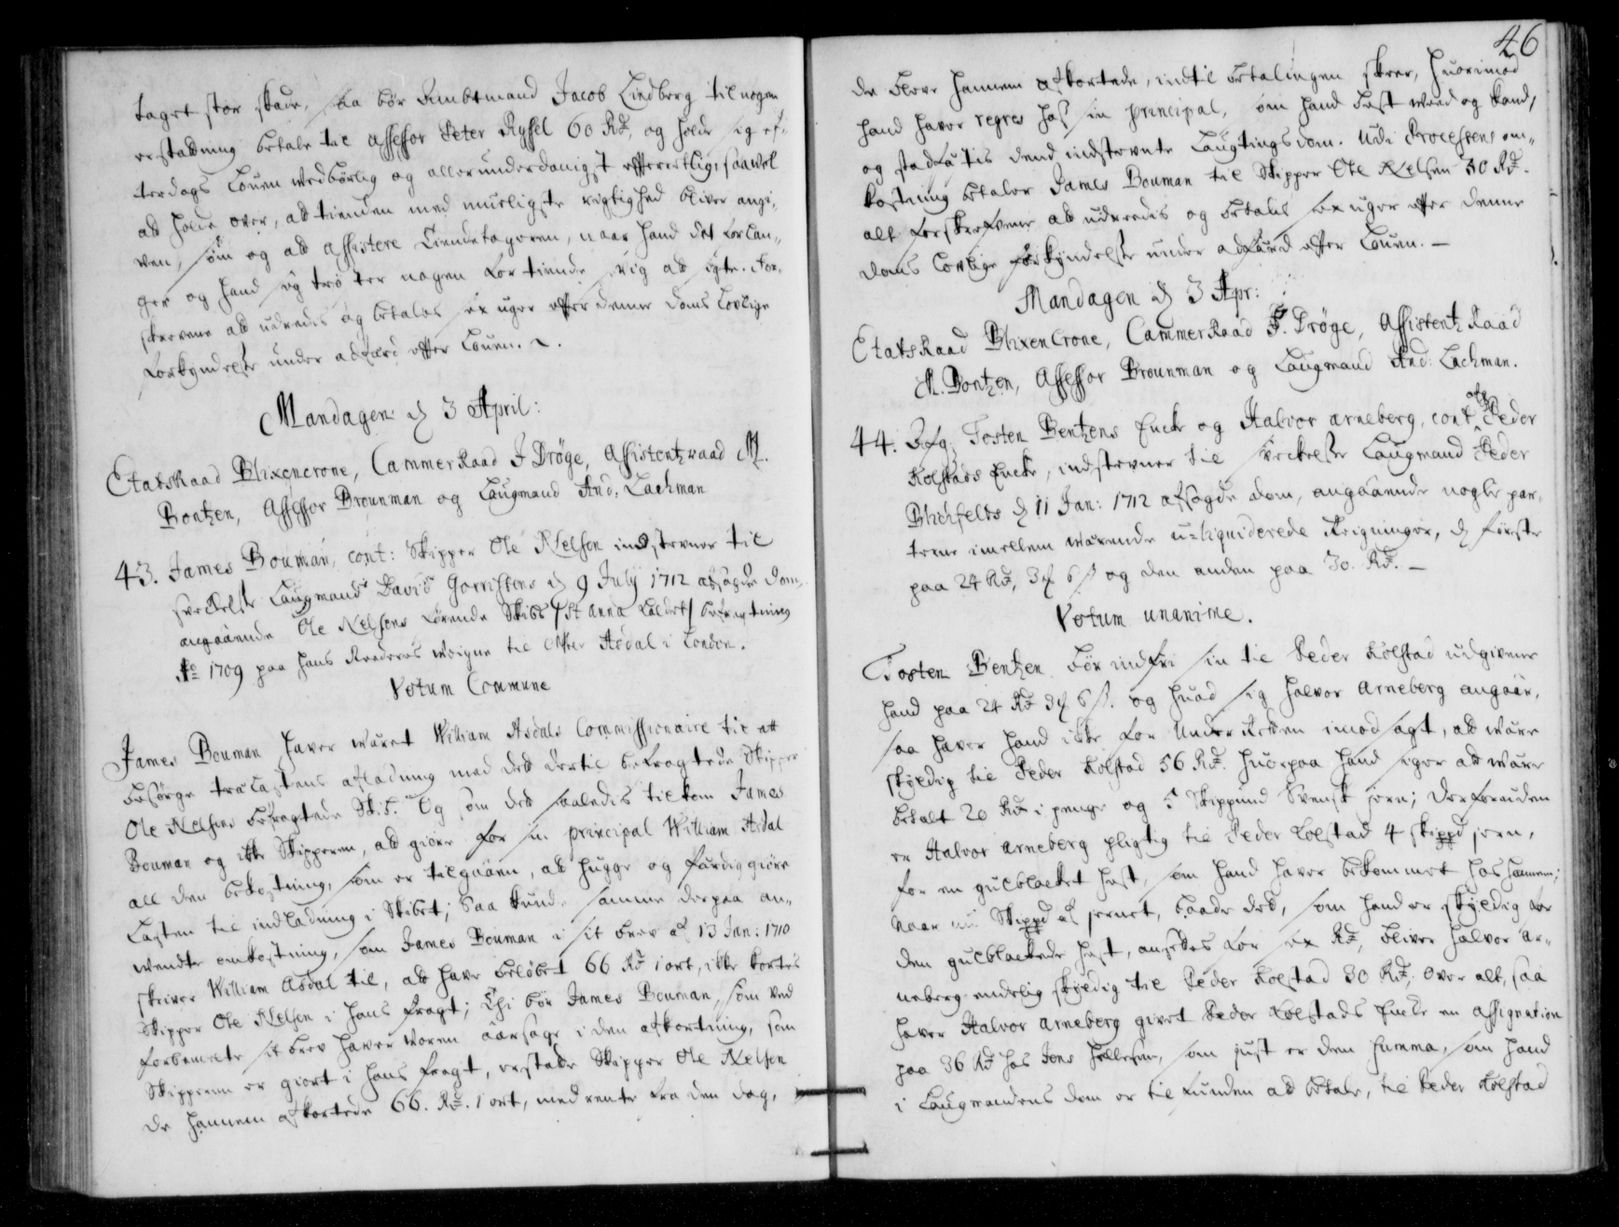 taget stor skade, saa bør Ambtmand Jacob Lindberg til nogen
erstatning betale til Assessor Peter Ryssel 60 Rd, og holde sig ef-
terdags Louen wedbørlig og allerunderdanigst efterrettlig, saawel
at holde over, at tienden med mueligste rigtighed bliver angi-
ven, som og at assistere Tiendetageren, naar hand det forlan-
ger og hand sig trøster nogen for tiende svig at sigte. For-
skrevene at udredis og betales sex uger effter denne Doms Lovlige
forkyndelse under adfærd effter Louen.
Mandagen d 3 April:
EtatsRaad Blixencrone, CammerRaad J Drøge, Assistentzraad M.
Bentzen, Assessor Brounman og Laugmand And. Lachman
43. James Bouman, cont: Skipper Ole Nelsen indstevner til
svekelse Laugmand David Gerrissens d 9 July 1712 afsagde Dom,
angaaende Ole Nelsens førende Skibs /St Anna kaldet/ befragtning
Ao 1709 paa hans Reederes weigne til Asdal i London.
Votum Commune
James Bouman haver wæret William Asdals Commissionaire til at
besørge trælastens afladning med det dertil befragtede Skipper
Ole Nelsens befragtede Skib. Og som det saaledis tilkom James
Bouman og ikke Skipperen, at giøre for sin principal William Asdal
all den bekostning, som er tilgaaen, at hugge og færdiggiøre
Lasten til indladning i Skibet; Saa kunde samme derpaa an-
wendte omkostning, som James Bouman i sit brev af 13 Jan: 1710
skriver William Asdal til, at have beløbet 66 Rd 1 ort, ikke kortes
Skipper Ole Nelsen i hans fragt; Thi bør James Bouman, som ved
forbemelte sit brev haver woren aarsage i den afkortning, som
Skipperen er giort i hans fragt, erstatte Skipper Ole Nelsen
de hannem afkortede 66. Rd. 1 ort, med rente fra den dag,
46
de bleve hannem afkortede, indtil betalingen skeer, huorimod
hand haver regres hos sin principal, om hand best weed og kand,
og stadfæstis dend indstevnte Laugtings dom. Udi Processens om-
kostning betaler James Bouman til Skipper Ole Nelsen 30 Rd.
alt forskrefvene at udredis og betalis sex uger effter denne
Doms Lovlige forkyndelse under adfærd effter Louen. —
Mandagen d 3 Apr:
EtatsRaad Blixencrone, CammerRaad J. Drøge, AssistentzRaad
M. Bentzen, Assessor Brounman og Laugmand And: Lachman.
44. Tosten Bentzens Encke og Halvor Arneberg, cont Peder
Kolstads Encke, indstevner til svekelse Laugmand Peder
Blichfelts d 11 Jan: 1712 afsagde dom, angaaende nogle par-
terne imellem wærende u-liquiderede Reigninger, d første
paa 24 Rd, 3 6 ß og den anden paa 30. Rd. —
Votum unanime.
Tosten Bentzen bør indfri sin til Peder Kolstad udgivene
hand paa 24 Rd 3 6 ß. og huad sig Halvor Arneberg angaar,
saa haver hand ikke for Underretten imod sagt, at wære
skyldig til Peder Kolstad 56 Rd. huorpaa hand siger at wære
betalt 20 Rd i penge og 5 Skippund Svensk jern; Desforuden
er Halvor Arneberg pligtig til Peder Kolstad 4 skippd jern,
for en gulblacket hest, som hand haver bekommet hos hannem;
Naar nu Skippd af jernet, baade det, som hand er skyldig for
den gulblackede hest, ansettes for sex Rd, bliver Halvor Ar-
neberg endelig skyldig til Peder Kolstad 30 Rd; Over alt, saa
haver Halvor Arneberg givet Peder Kolstads Encke en assignation
paa 36 Rd hos Jens Hellesen, som just er den summa, som hand
i Laugmandens dom er tilfunden at betale, til Peder Kolstad